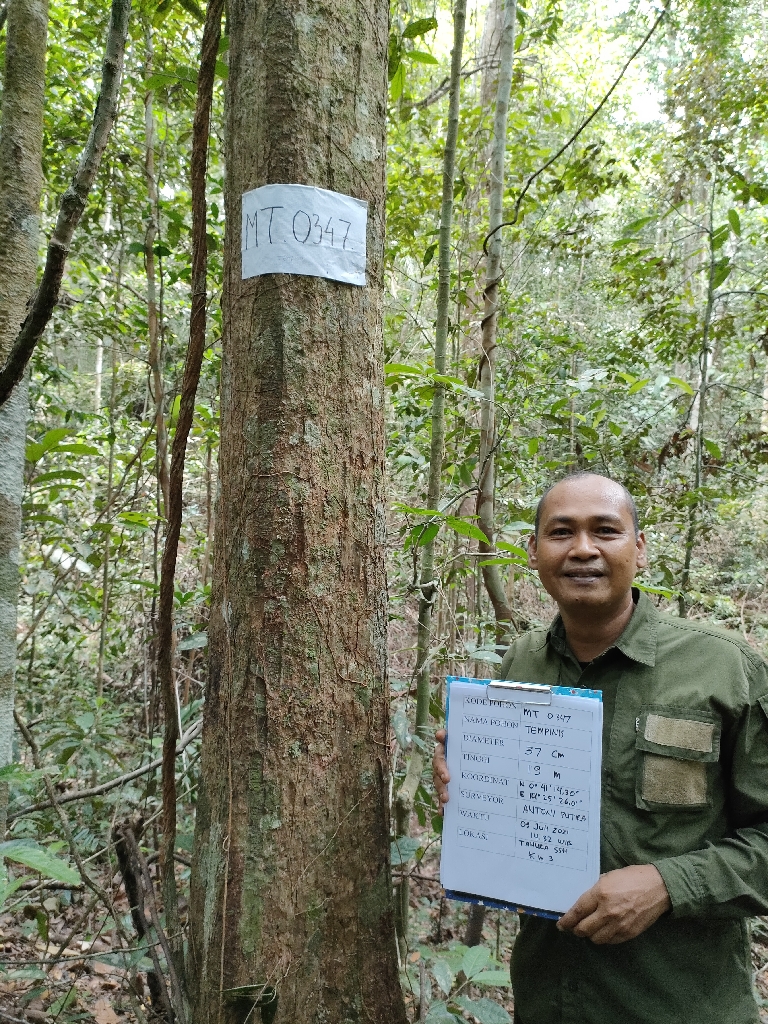 MT. 0347
KODE POHON MT 0347
NAMA POHON TEMPINIS
DIAMETER 37 CM
TINGGI 19 M
KOORDINAT N 0° 41' 14.30"
SURVEYOR
WAKTU 09 JULI 2021
10.32 WIB
LOKASI TAHURA SSH